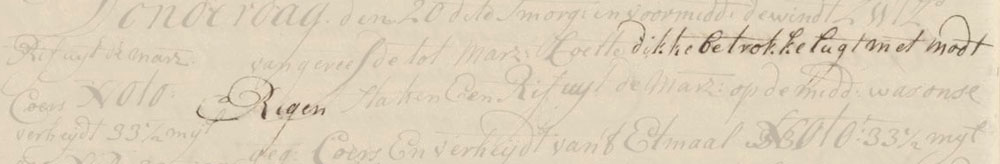 Donderdag. den 20 dito Smorg: en voormidd: de windt ZWtZ
Rif uyt de marz: van gereefde tot Marz: Coelte dikke betrokke lugt met modt
Coers NOtO: Regen staken Een Rif uyt de Marz: op de midd: was onse
verheydt 33½ myl geg: Coers En verheydt van't Etmaal NOtO: 33½ myl